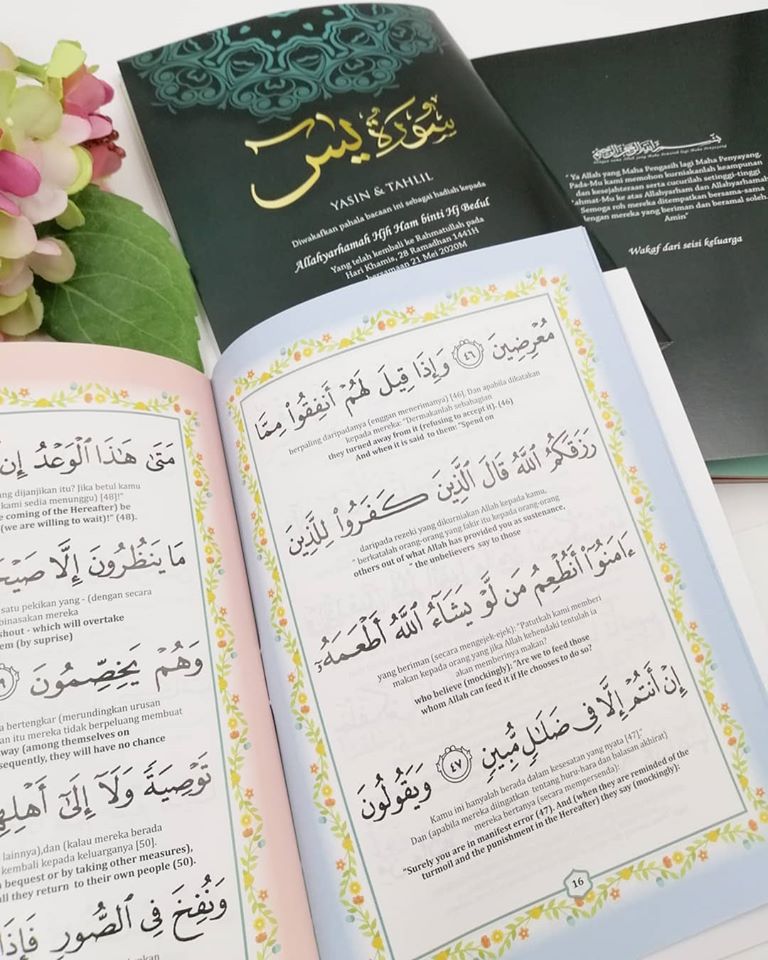 سورة يس
YASIN & TAHLIL
Diwakafkan pahala bacaan ini sebagai hadiah kepada
Allahyarhamah Hjh Ham binti Hj Bedul
Yang telah kembali ke Rahmatullah pada
Hari Khamis, 28 Ramadhan 1441H
bersamaan 21 Mei 2020M
" Ya Allah yang Maha Pengasih lagi Maha Penyayang,
Pada-Mu kami memohon kurniakanlah keampunan
dan kesejahteraan serta cucurilah setinggi-tinggi
rahmat-Mu ke atas Allahyarham dan Allahyarhamah
Semoga roh mereka ditempatkan bersama-sama
dengan mereka yang beriman dan beramal soleh.
Amin"
Wakaf dari seisi keluarga
مُعْرِضِينَ ٤٦ وَإِذَا قِيلَ لَهُمْ أَنفِقُوا۟ مِمَّا
berpaling daripadanya (enggan menerimanya) [46]. Dan apabila dikatakan
kepada mereka: "Dermakanlah sebahagian
they turned away from it (refusing to accept it). (46)
And when it is said to them: "Spend on
رَزَقَكُمُ ٱللَّهُ قَالَ ٱلَّذِينَ كَفَرُوا۟ لِلَّذِينَ
daripada rezeki yang dikurniakan Allah kepada kamu,
" berkatalah orang-orang yang fakir itu kepada orang-orang
others out of what Allah has provided you as sustenance,
" the unbelievers say to those
ءَامَنُوٓا۟ أَنُطْعِمُ مَن لَّوْ يَشَآءُ ٱللَّهُ أَطْعَمَهُۥٓ
yang beriman (secara mengejek-ejek): "Patutkah kami memberi
makan kepada orang yang jika Allah kehendaki tentulah ia
akan memberinya makan?
who believe (mockingly): "Are we to feed those
whom Allah can feed it if He chooses to do so?
إِنْ أَنتُمْ إِلَّا فِى ضَلَٰلٍ مُّبِينٍ ٤٧ وَيَقُولُونَ
Kamu ini hanyalah berada dalam kesesatan yang nyata [47]."
Dan (apabila mereka diingatkan tentang huru-hara dan balasan akhirat)
mereka bertanya (secara mempersenda):
"Surely you are in manifest error (47). And (when they are reminded of the
turmoil and the punishment in the Hereafter) they say (mockingly):
16
مَتَىٰ هَٰذَا ٱلْوَعْدُ إِن
dijanjikan itu? Jika betul kamu
kami sedia menunggu) [48]!"
coming of the Hereafter) be
(we are willing to wait)!" (48).
مَا يَنظُرُونَ إِلَّا صَيْحَ
satu pekikan yang - (dengan secara
binasakan mereka
shout - which will overtake
them (by suprise)
وَهُمْ يَخِصِّمُونَ
bertengkar (merundingkan urusan
itu mereka tidak berpeluang membuat
way (among themselves on
sequently, they will have no chance
تَوْصِيَةً وَلَآ إِلَىٰٓ أَهْلِهِ
lainnya),dan (kalau mereka berada
kembali kepada keluarganya [50].
bequest or by taking other measures),
they return to their own people (50).
وَنُفِخَ فِى ٱلصُّورِ فَإِذَا